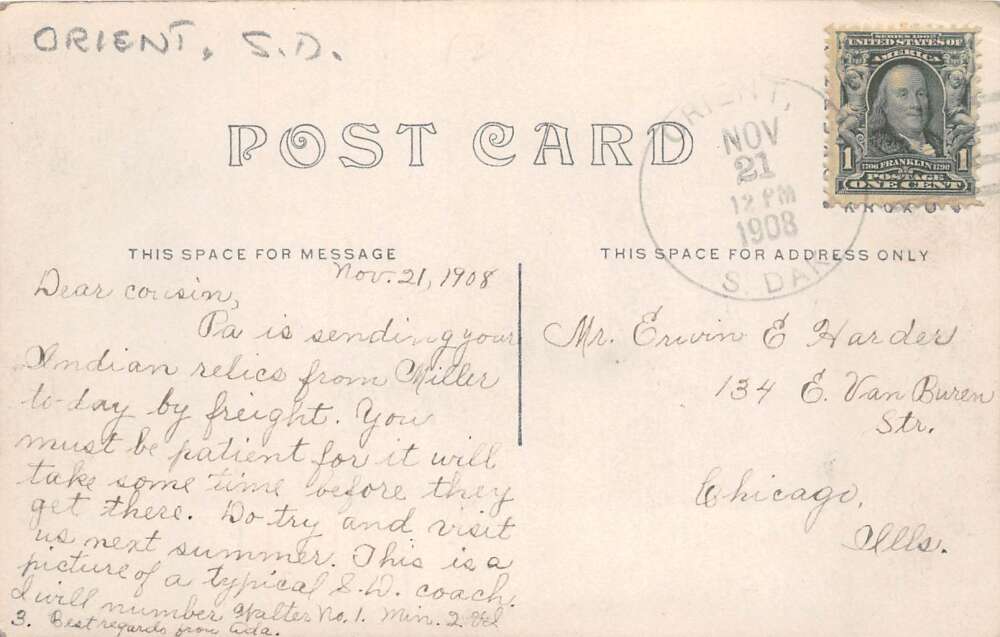 ORIENT, S.D.
SERIES 1902
UNITED STATES OF
AMERICA
1 1706 FRANKLIN 1790 1
POSTAGE
ONE CENT
ORIENT,
NOV
21
12 PM
1908
S. DAK
POST CARD
THIS SPACE FOR MESSAGE
THIS SPACE FOR ADDRESS ONLY
Nov. 21, 1908
Dear cousin,
Pa is sending your
Indian relics from Miller
to-day by freight. You
must be patient for it will
take some time before they
get there. Do try and visit
us next summer. This is a
picture of a typical S.D. coach.
I will number Walter No. 1. Min. 2
3. Best regards from Ada.
Mr. Erwin E Harder
134 E. Van Buren
Str.
Chicago,
Ills.